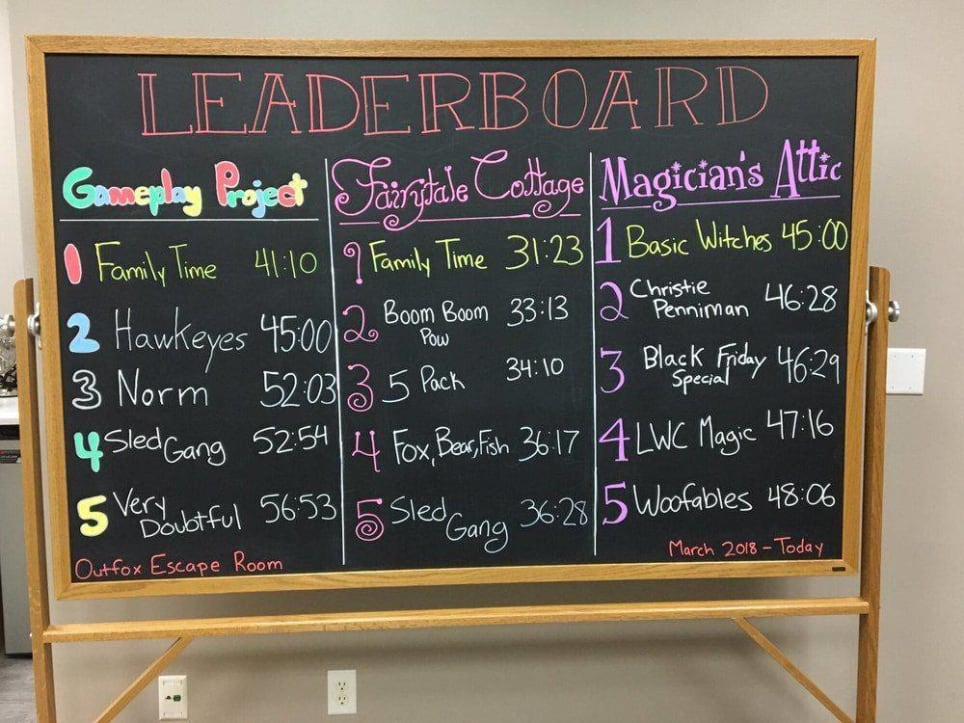 LEADERBOARD
Gameplay Project
1 Family Time 41:10
2 Hawkeyes 45:00
3 Norm 52:03
4 Sled Gang 52:54
5 Very
Doubtful 56:53
Outfox Escape Room
Fairytale Cottage
1 Family Time 31:23
2 Boom Boom 33:13
Pow
3 5 Pack 34:10
4 Fox, Bear, Fish 36:17
5 Sled Gang 36:28
Magician's Attic
1 Basic Witches 45:00
2 Christie
Penniman 46:28
3 Black Friday 46:29
Special
4 LWC Magic 47:16
5 Woofables 48:06
March 2018 - Today